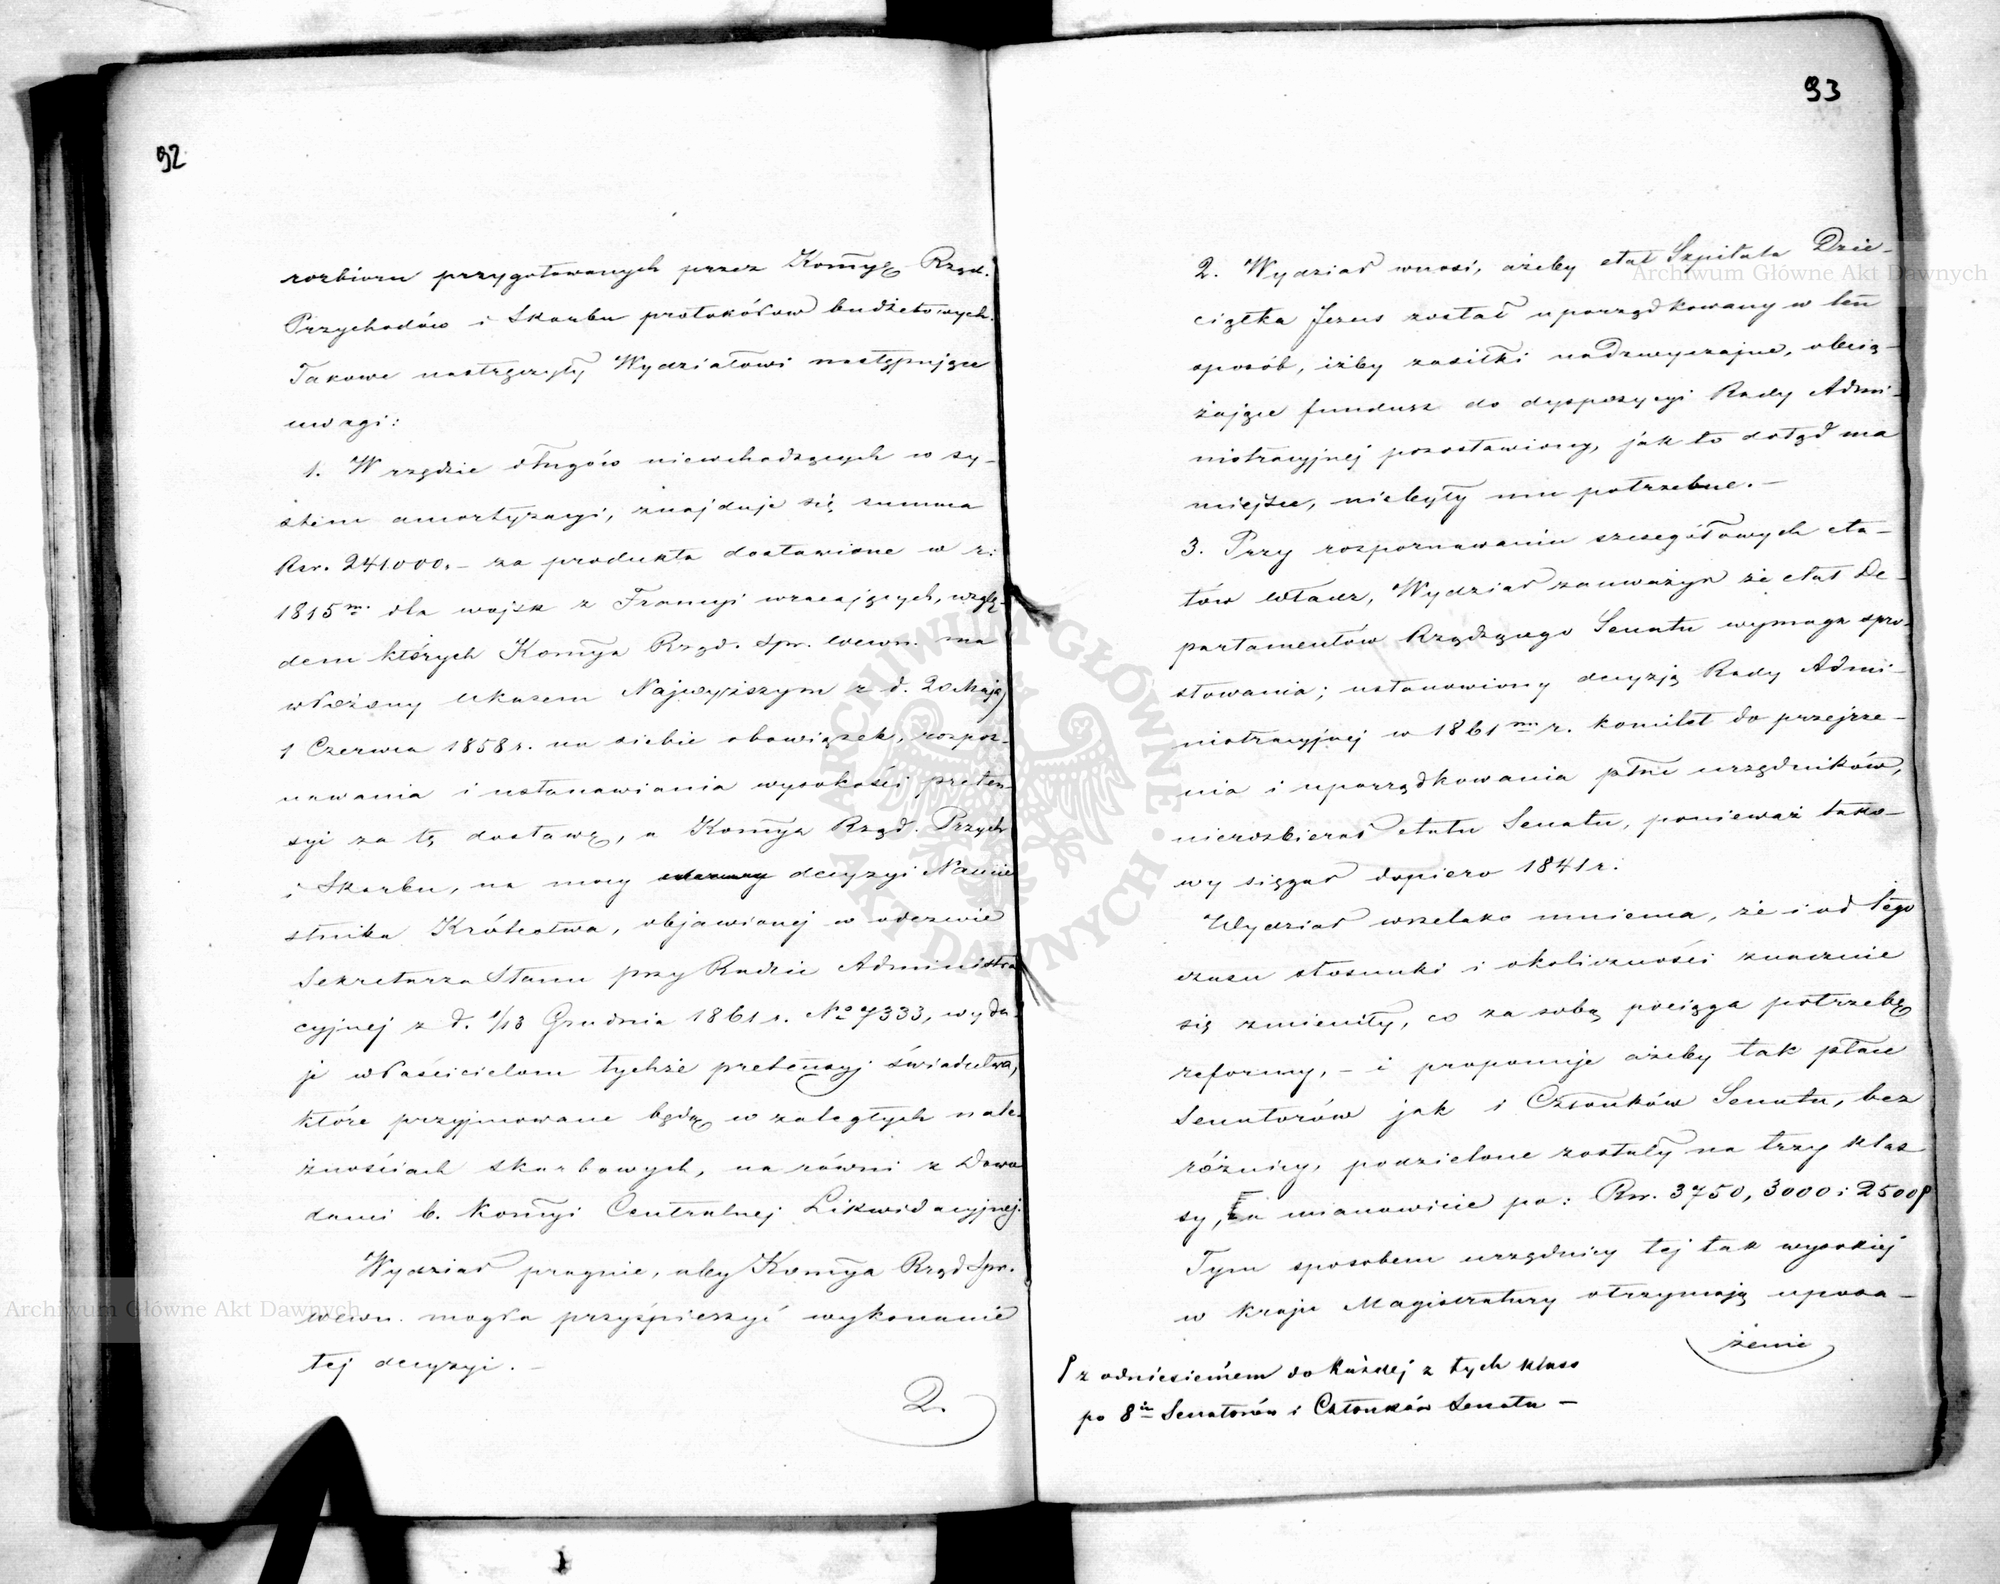 92
rozbioru przygotowanych przez Kommyę Rząd.
Przychodów i Skarbu protokółów budżetowych.
Takowe nastręczyły Wydziałowi następujące
uwagi:
1. W rzędzie długów niewchodzących w sy-
stem amortyzacyi, znajduje się summa
Rsr. 241000.- za produkta dostawione w r:
1815 m. dla wojsk z Francyi wracających, wzglę-
dem których Kommya Rząd. Spr. Wewn. ma
włożony Ukazem Najwyższym z d. 20 Maja/
1 Czerwca 1858 r. na siebie obowiązek, rozpoz-
nawania i ustanawiania wysokości preten-
syi za tę dostawę, a Kommya Rząd. Przych
i Skarbu, na mocy decyzyi Namie
stnika Królestwa, objawionej w odezwie
Sekretarza Stanu przy Radzie Administra
cyjnej z d. 1/13 Grudnia 1861 r. No 7333, wyda-
je właścicielom tychże pretensyj świadectwa,
które przyjmowane będą w zaległych nale-
żnościach skarbowych, na równi z Dowo
dami b. Kommyi Centralnej Likwidacyjnej.
Wydział pragnie, aby Kommya Rząd Spr.
Wewn. mogła przyśpieszyć wykonanie
tej decyzyi. -
2.
93
2. Wydział wnosi, ażeby etat Szpitala Dzie-
ciątka Jezus został uporządkowany w ten
sposób, iżby zasiłki nadzwyczajne, obcią-
żające fundusz do dyspozycyi Rady Admi-
nistracyjnej pozostawiony, jak to dotąd ma
miejsce, niebyły mu potrzebne. -
3. Przy rozpoznawaniu szczegółowych eta-
tów Władz, Wydział zauważył że etat De-
partamentów Rządzącego Senatu wymaga spro-
stowania; ustanowiony decyzją Rady Admi-
nistracyjnej w 1861 m r. komitet do przejrze-
nia i uporządkowania płac urzędników,
nierozbierał etatu Senatu, ponieważ tako-
wy sięgał dopiero 1841 r.
Wydział wszelako mniema, że i od tego
czasu stosunki i okoliczności znacznie
się zmieniły, co za sobą pociąga potrzebę
reformy, - i proponuje ażeby tak płace
Senatorów jak i Członków Senatu, bez
różnicy, podzielone zostały na trzy klas
sy, a mianowicie po: Rsr. 3750, 3000 i 2500
Tym sposobem urzędnicy tej tak wysokiej
w kraju Magistratury otrzymają uposa-
żenie
z odniesieniem do każdej z tych klass
po 8iu Senatorów i Członków Senatu -
Archiwum Główne Akt Dawnych
Archiwum Główne Akt Dawnych
ARCHIWUM GŁÓWNE AKT DAWNYCH